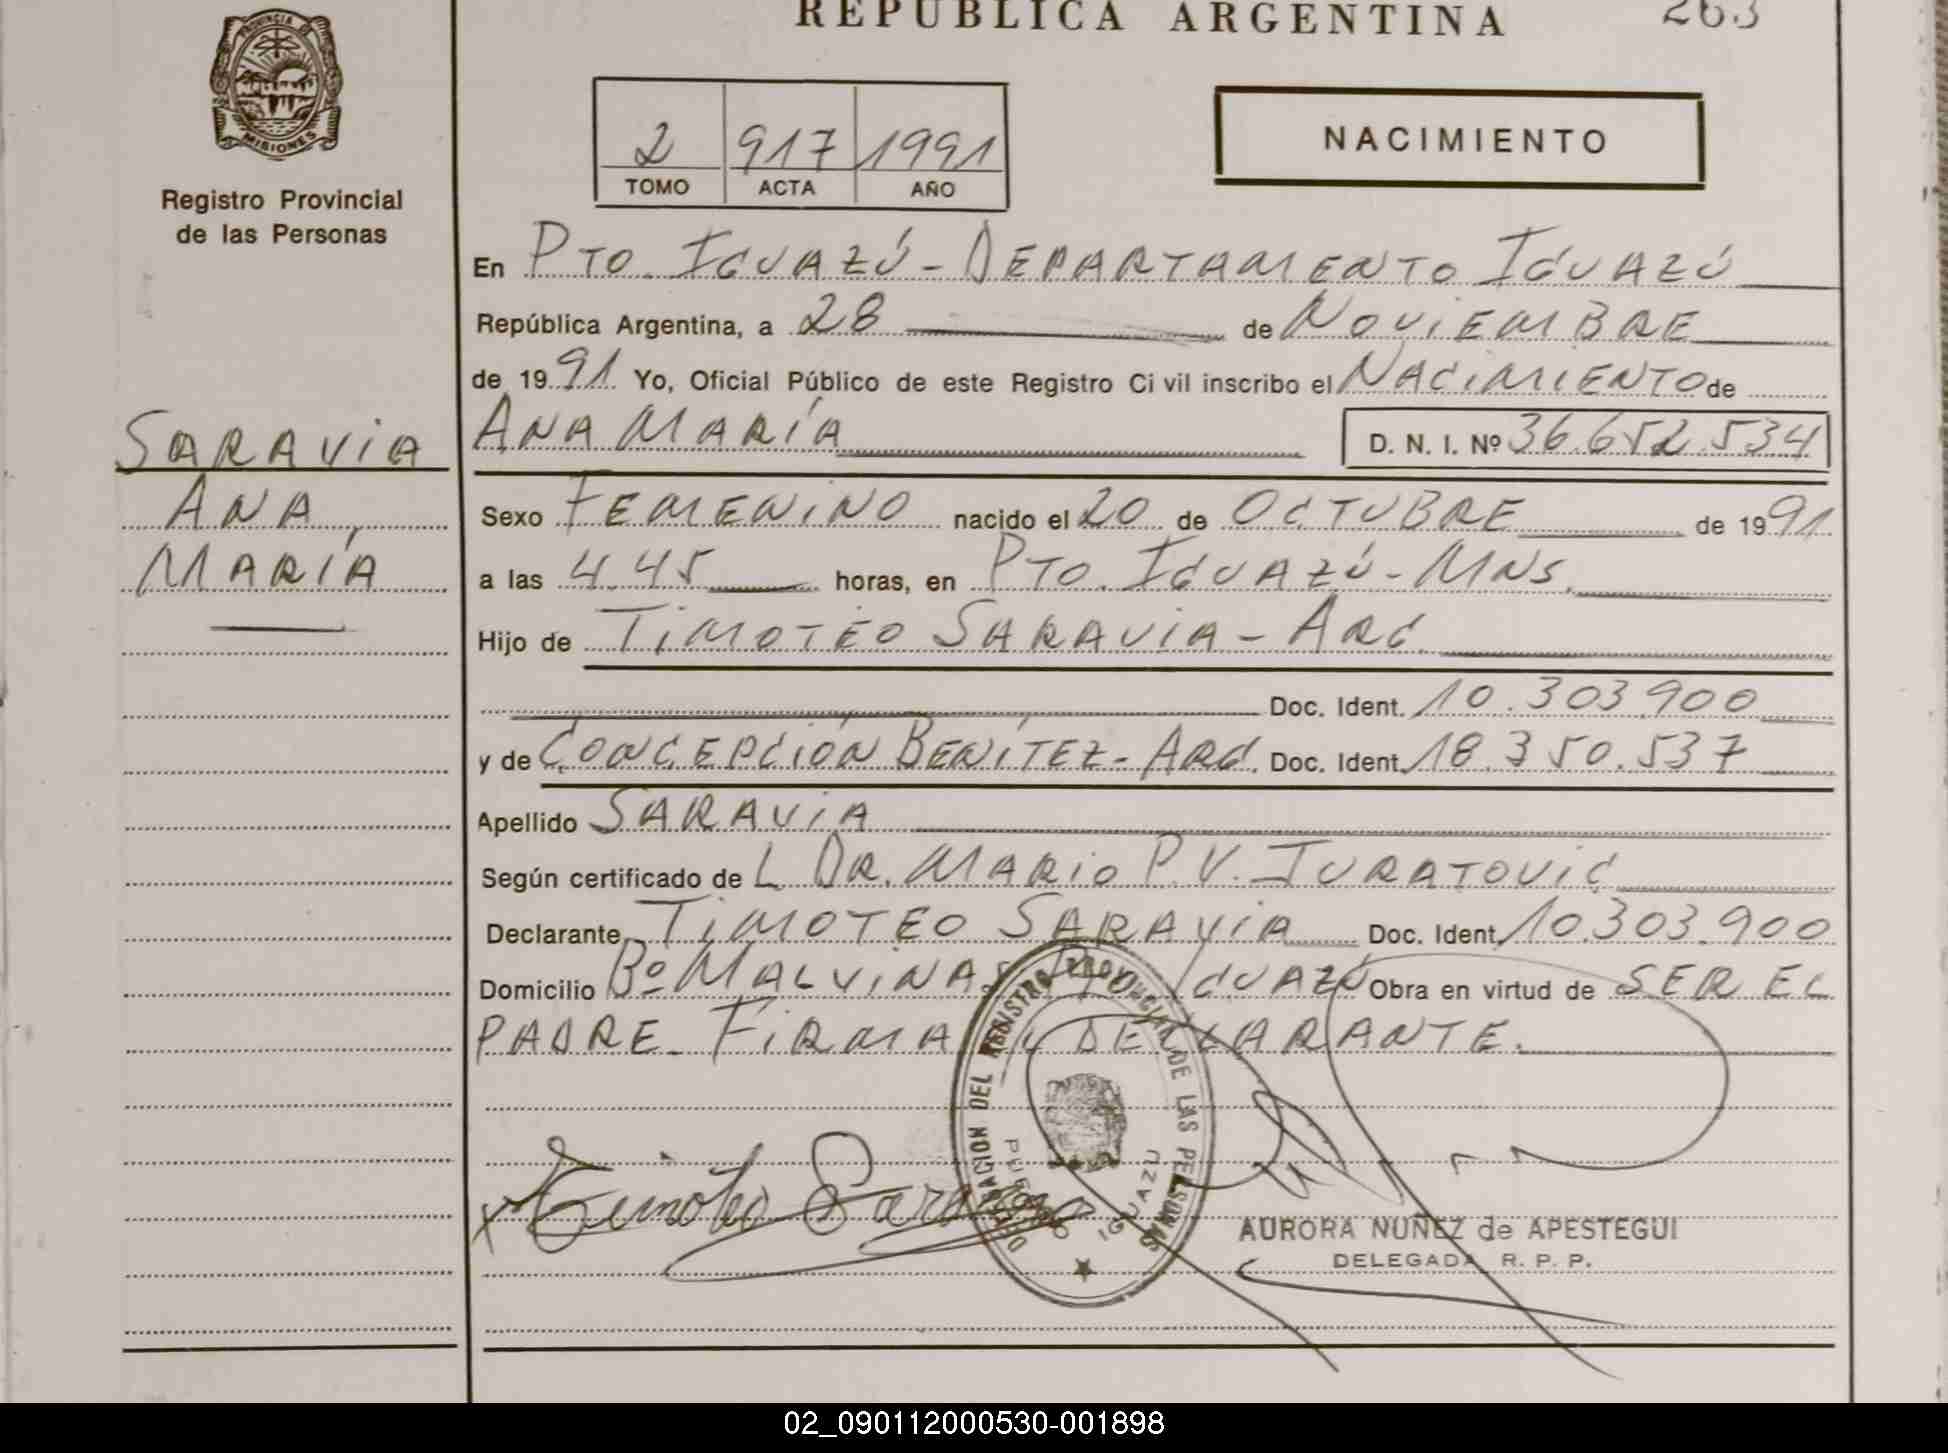 REPÚBLICA ARGENTINA
263
PROVINCIA DE
MISIONES
Registro Provincial
de las Personas
2 917 1991
TOMO ACTA AÑO
NACIMIENTO
En PTO. IGUAZÚ - DEPARTAMENTO IGUAZÚ
República Argentina, a 28 de NOVIEMBRE
de 1991 Yo, Oficial Público de este Registro Ci vil inscribo el NACIMIENTO de
SARAVIA
ANA
MARÍA
ANA MARÍA D. N. I. Nº 36.652.534
Sexo FEMENINO nacido el 20 de OCTUBRE de 1991
a las 4.45 horas, en PTO. IGUAZÚ - MNS.
Hijo de TIMOTEO SARAVIA - ARG.
Doc. Ident. 10.303.900
y de CONCEPCIÓN BENÍTEZ - ARG. Doc. Ident. 18.350.537
Apellido SARAVIA
Según certificado de L DR. MARIO P. V. JURATOVIC
Declarante TIMOTEO SARAVIA Doc. Ident. 10.303.900
Domicilio Bº MALVINAS IGUAZÚ Obra en virtud de SER EL
PADRE. FIRMA DECLARANTE.
DELEGACION DEL REGISTRO PROVINCIAL DE LAS PERSONAS
PUERTO IGUAZU
x Timoteo Saravia
AURORA NUÑEZ de APESTEGUI
DELEGADA R. P. P.
02_090112000530-001898